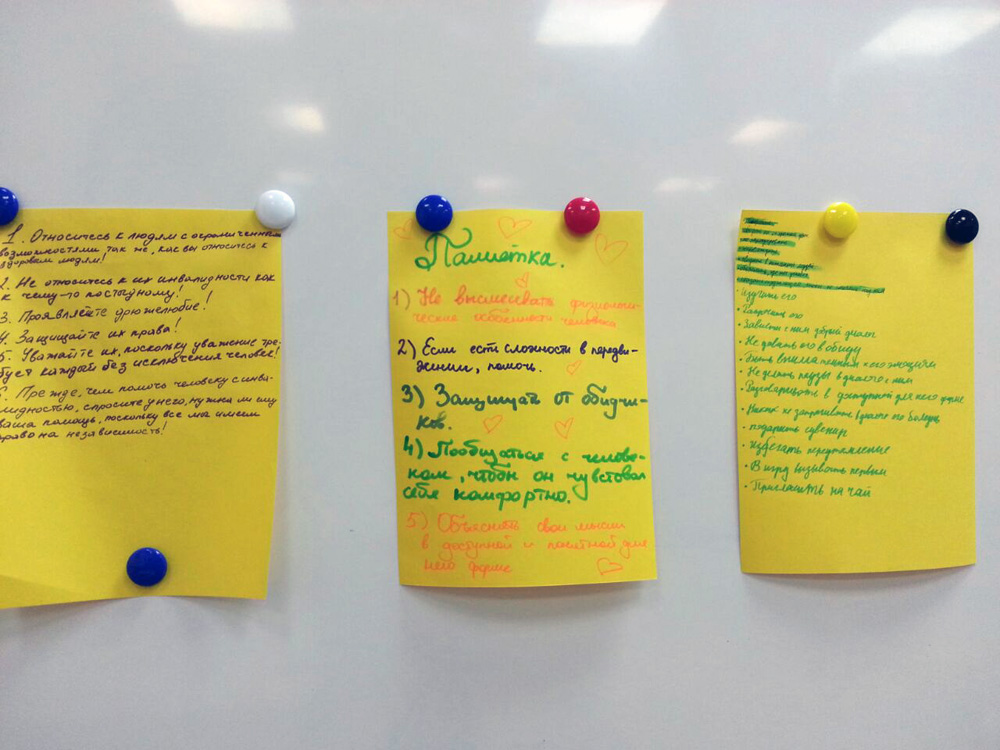 1. Относитесь к людям с ограниченным
возможностями, так же, как вы относитесь к
здоровым людям!
2. Не относитесь к их инвалидности как
к чему-то постыдному!
3. Проявляйте дружелюбие!
4. Защищайте их права!
5. Уважайте их, поскольку уважение тре-
бует каждый без исключения человек!
6. Прежде, чем помочь человеку с инва-
лидностью, спросите у него, нужна ли ему
ваша помощь, поскольку все мы имеем
право на независимость!
Памятка.
1) Не высмеивать физиологи-
ческие особенности человека
2) Если есть сложности в передви-
жении, помочь.
3) Защищать от обидчи-
ков.
4) Пообщаться с челове-
ком, чтобы он чувствовал
себя комфортно.
5) Объяснять свои мысли
в доступной и понятной для
него форме
• Изучить его
• Завести с ним добрый диалог
• Не давать его в обиду
• Быть внимательным к его эмоциям
• Не делать паузы в диалоге с ним
• Разговаривать в доступной для него форме
• подарить сувенир
• избегать переутомление
• В игру вызывать первым
• Приглашать на чай